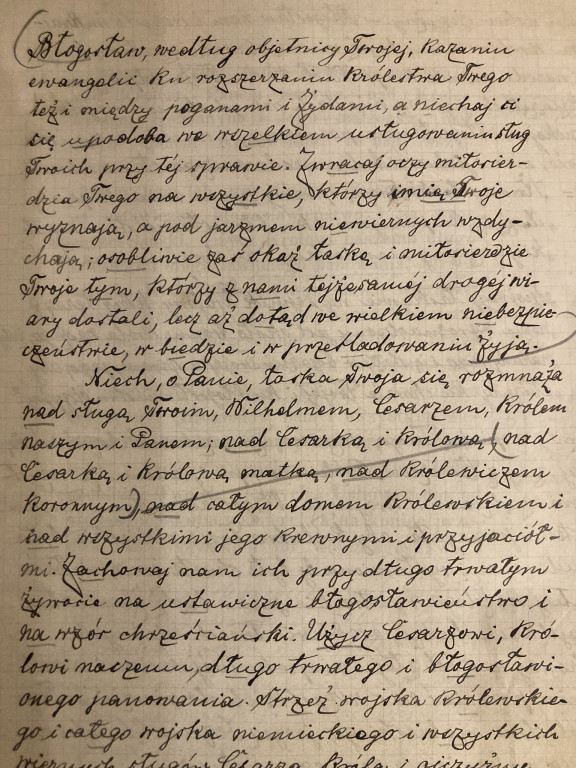 Błogosław, według objetnicy Twojej, kazaniu
ewangelii ku rozszerzaniu królestwa Twego
też i między poganami i żydami, a niechaj ci
się upodoba we wszelkiem usługowaniu sług
Twoich przy téj sprawie. Zwracaj oczy miłosier-
dzia Twego na wszystkie, którzy imię Twoje
wyznają, a pod jarzmem niewiernych wzdy-
chają; osobliwie zaś okaż łaskę i miłosierdzie
Twoje tym, którzy z nami téjżesaméj drogéj wi-
ary dostali, lecz aż dotąd we wielkiem niebezpie-
czeństwie, w biedzie i w prześladowaniu żyją.
Niech, o Panie, łaska Twoja się rozmnaża
nad sługą Twoim, Wilhelmem, Cesarzem, Królem
naszym i Panem; nad Cesarką i Królową, (nad
Cesarką i Królową matką, nad Królewiczem
koronnym), nad całym domem Królewskiem i
nad wszystkimi jego krewnymi i przyjaciół-
mi. Zachowaj nam ich przy długo trwałym
żywocie na ustawiczne błogosławieństwo i
na wzór chrześciański. Użycz Cesarzowi, Kró-
lowi naszemu, długo trwałego i błogosławi-
onego panowania. Strzeż wojska Królewskie-
go i całego wojska niemieckiego i wszystkich
wiernych sługów Cesarza, Króla i ojczyzny